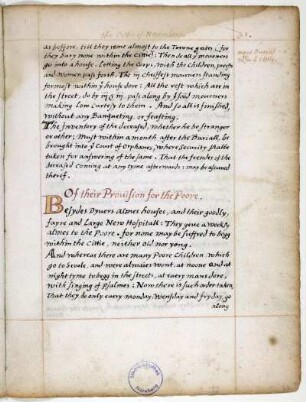 the Citty of Norenberge. 21.
as before, till they come almost to the Towne gates; for
they bury none within the Cittie: Then do all ye mourners
go into a house, Letting the Corps, with the Children, preests
and women pass forth. The iij cheiffest mourners standing
formest within ye house dore: All the rest which are in
the street, do by iij & iij pass along by ye said mourners
making Low curtesy to them. And so all is finished,
without any Banqueting, or feasting;
The Inventory of the deceased, whether he be stranger
or other; Must within a month after the Buriall, be
brought into ye Court of Orphanes, where security shalbe
taken for answering of the same. That the frendes of the
deceased coming at any tyme afterwards; may be assured
therof.
Of their Provision for the Poore.
Besydes Dyvers almes houses, and their goodly,
fayre and Large New Hospitall: They give a weekly
almes to the Poore. for none may be suffred to begg
within the Cittie, neither old nor yong.
And whereas there are many Poore Children which
go to Scoole, and were alwaies wont, at noone and at
night tyme to begg in the street, at every mans dore,
with singing of Psalmes: Now there is such order taken,
That they do only every monday, Wensday and fryday, go
along